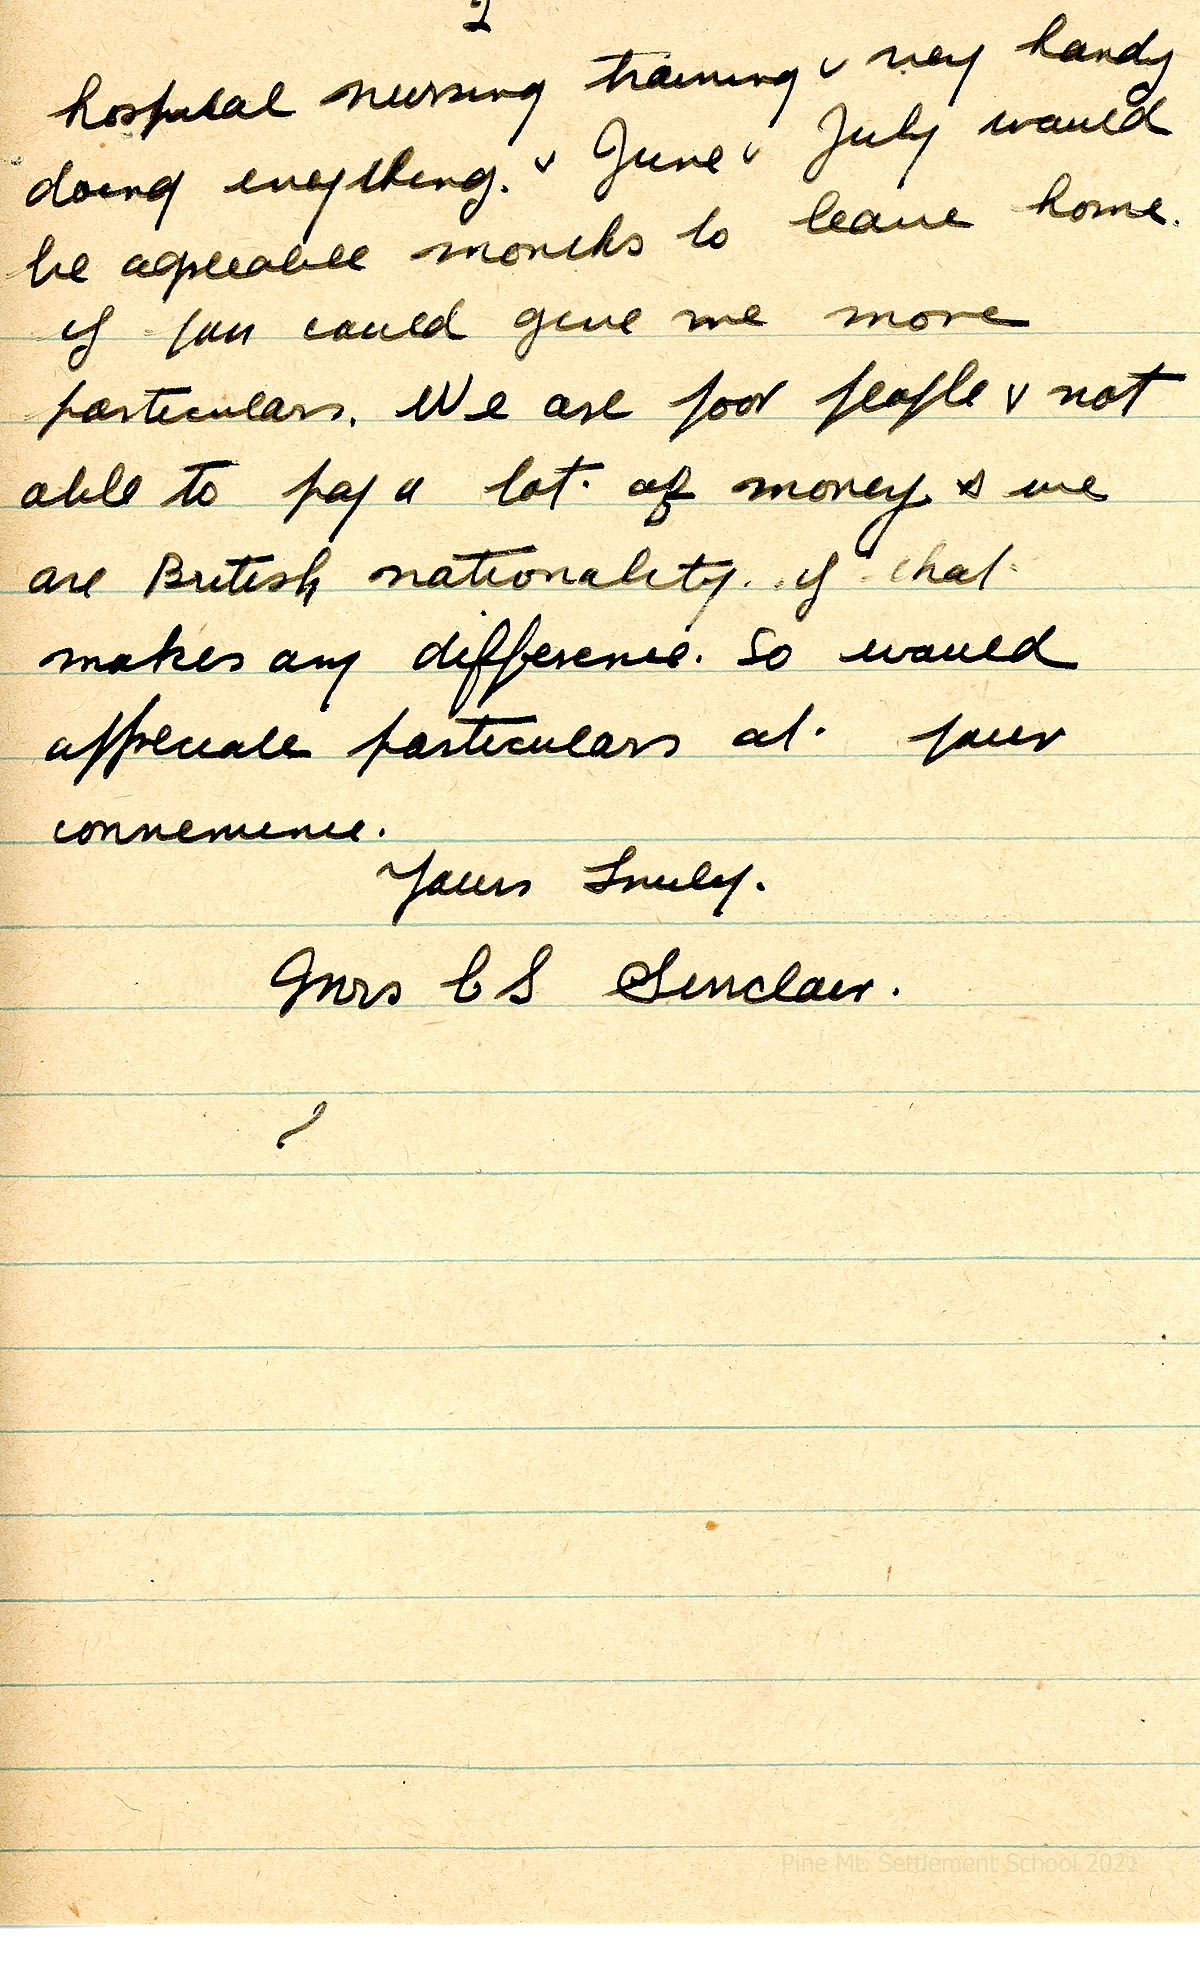 2
hospital nursing training & very handy
doing everything. & June & July would
be agreeable months to leave home.
if you could give me more
particulars. We are poor people & not
able to pay a lot. of money. & we
are British nationality. if that
makes any difference. So would
appreciate particulars at. your
convenience.
Yours Truly.
Mrs C S Sinclair.
Pine Mt. Settlement School 2021